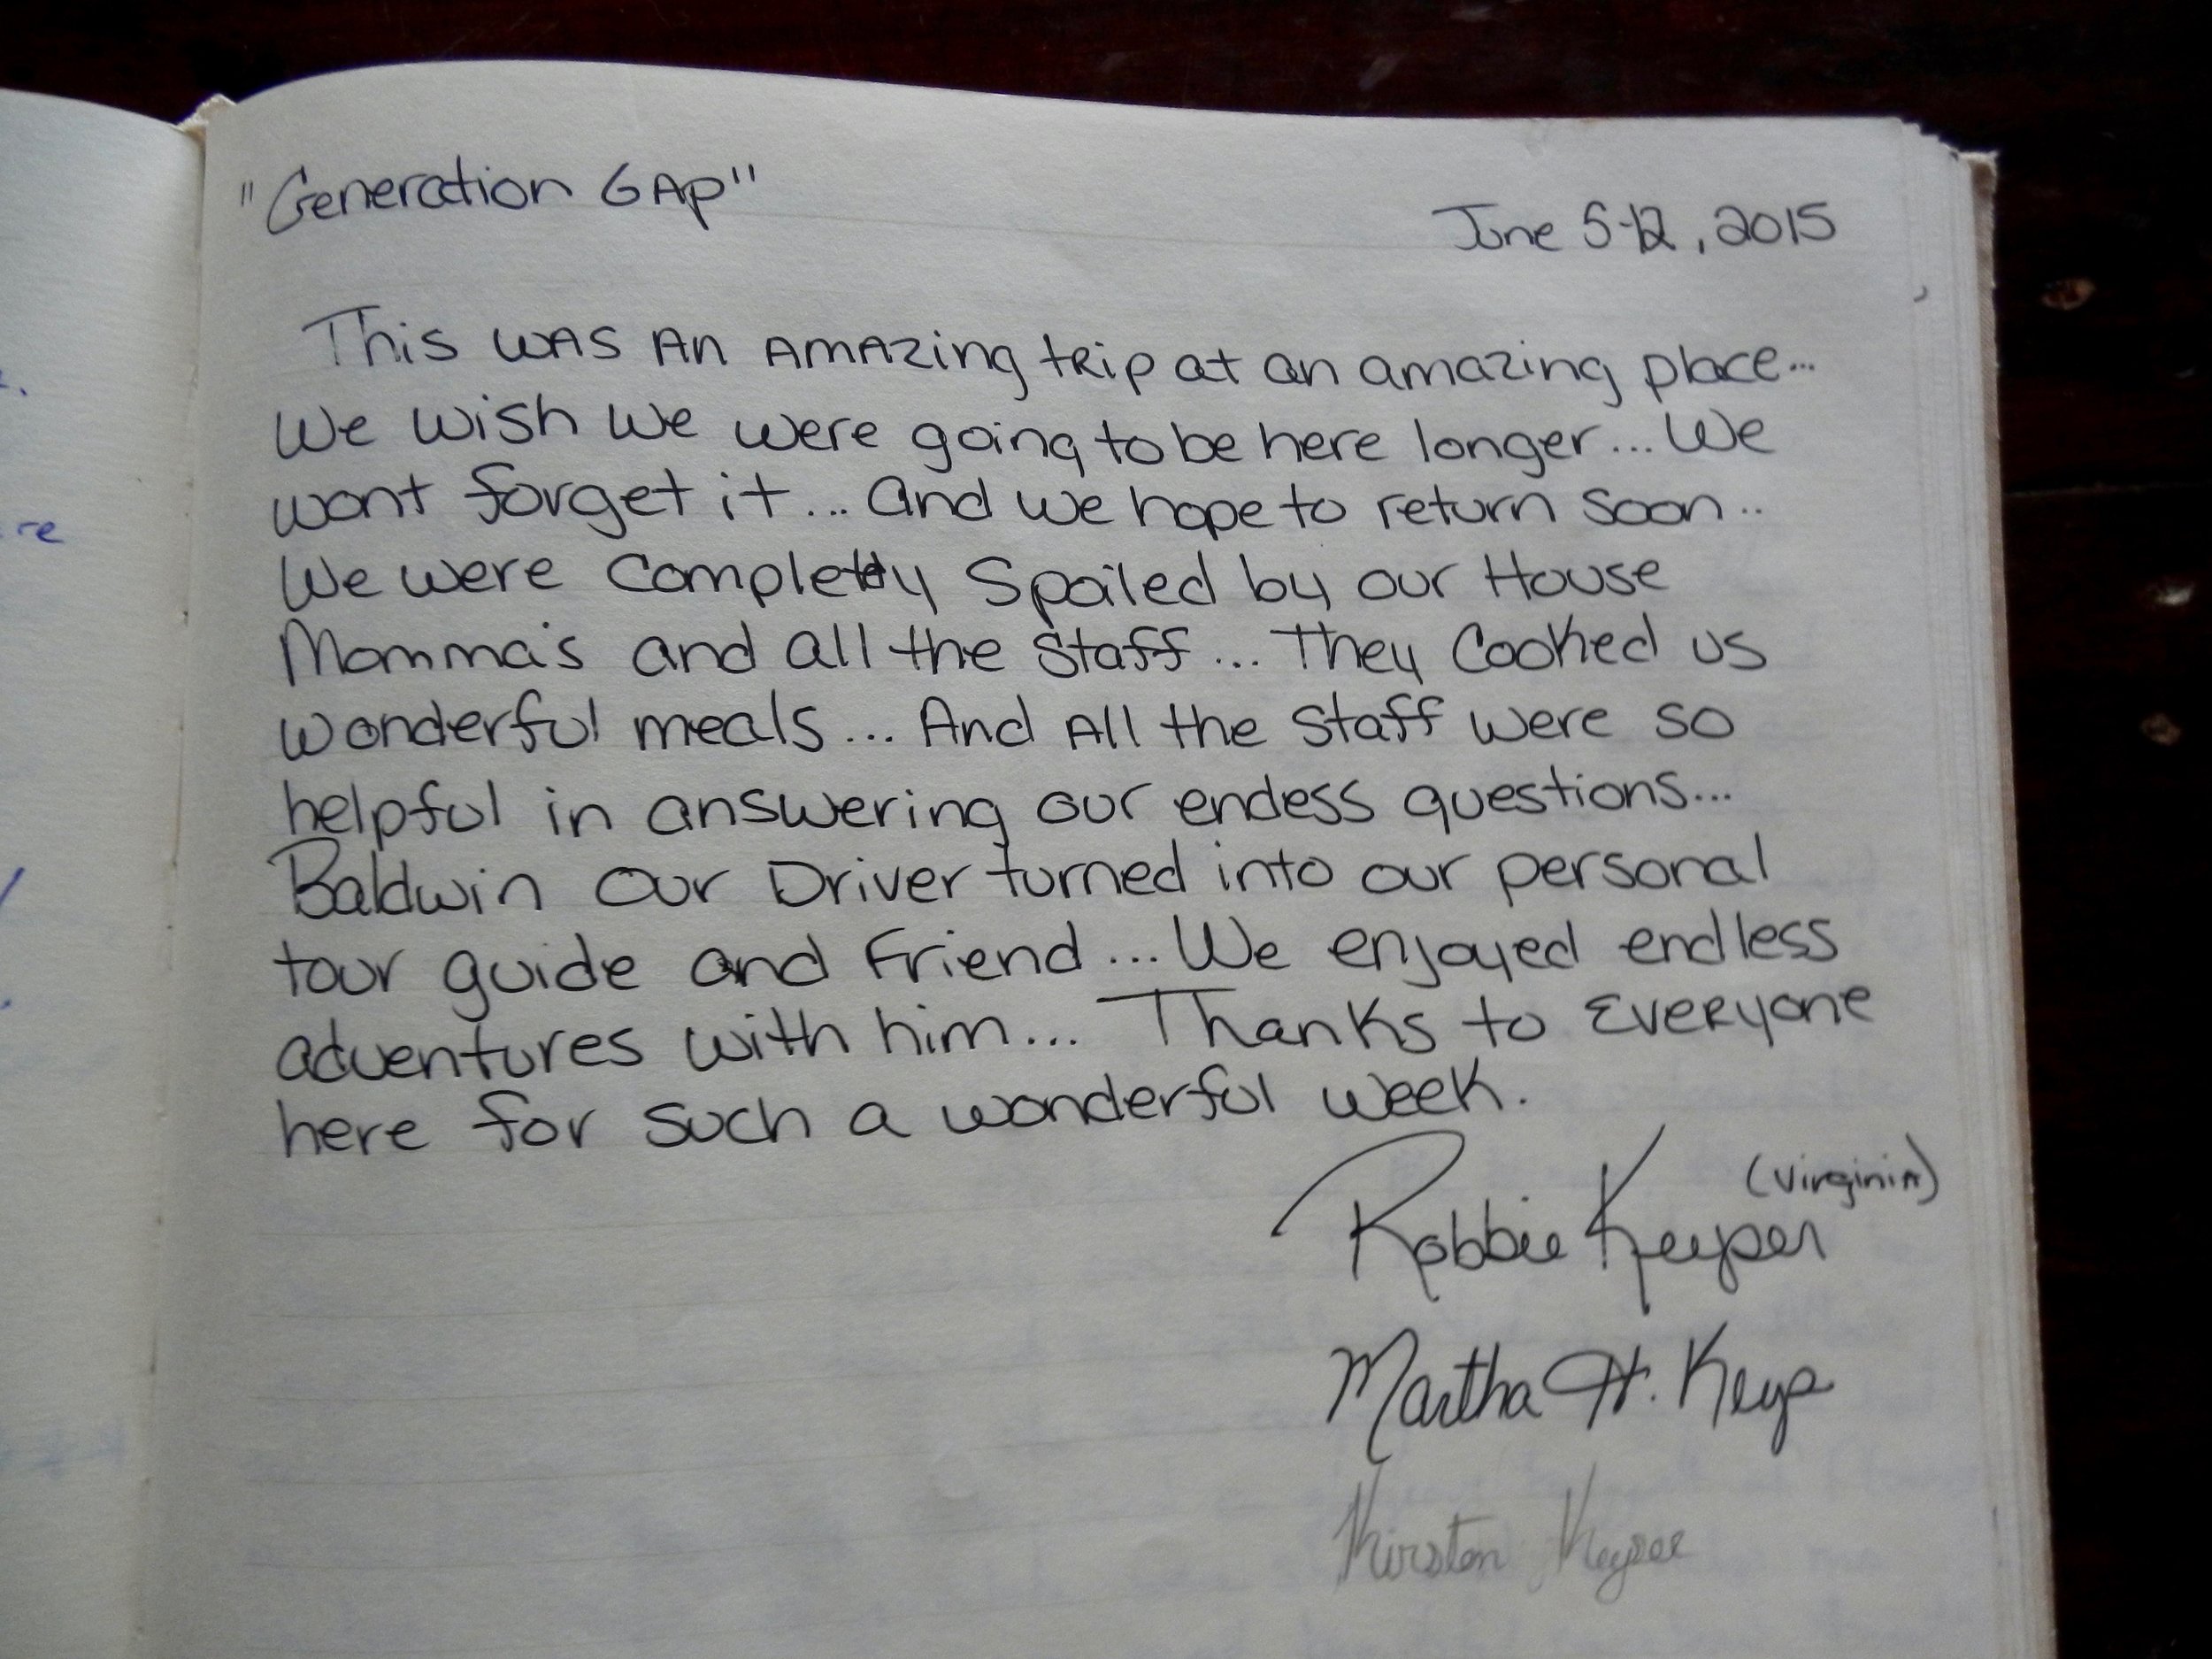 "Generation GAP"
June 5-12, 2015
This WAS An AMAzing tRip at an amazing place...
We wish we were going to be here longer... We
wont forget it... and we hope to return soon..
We were completly Spoiled by our House
Momma's and all the staff... They cooked us
wonderful meals... And All the staff were so
helpful in answering our endess questions...
Baldwin our Driver turned into our personal
tour guide and friend... We enjoyed endless
adventures with him... Thanks to EveRyone
here for such a wonderful week.
(Virginia)
Robbie Keyper
Martha H. Keyp
re